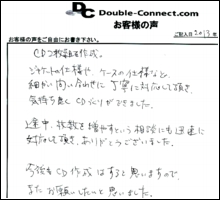 DC Double-Connect.com
お客様の声
お客様の声をご自由にお書き下さい。 ご記入日 2013年
CD2枚組を作成。
ジャケットの仕様や、ケースの仕様など、
細かい問い合わせに丁寧に対応して頂き、
気持ち良くCDづくりができました。
途中、枚数を増やすという相談にも迅速に
対応して頂き、ありがとうございました。
今後もCD作成はすると思いますので、
またお願いしたいと思いました。